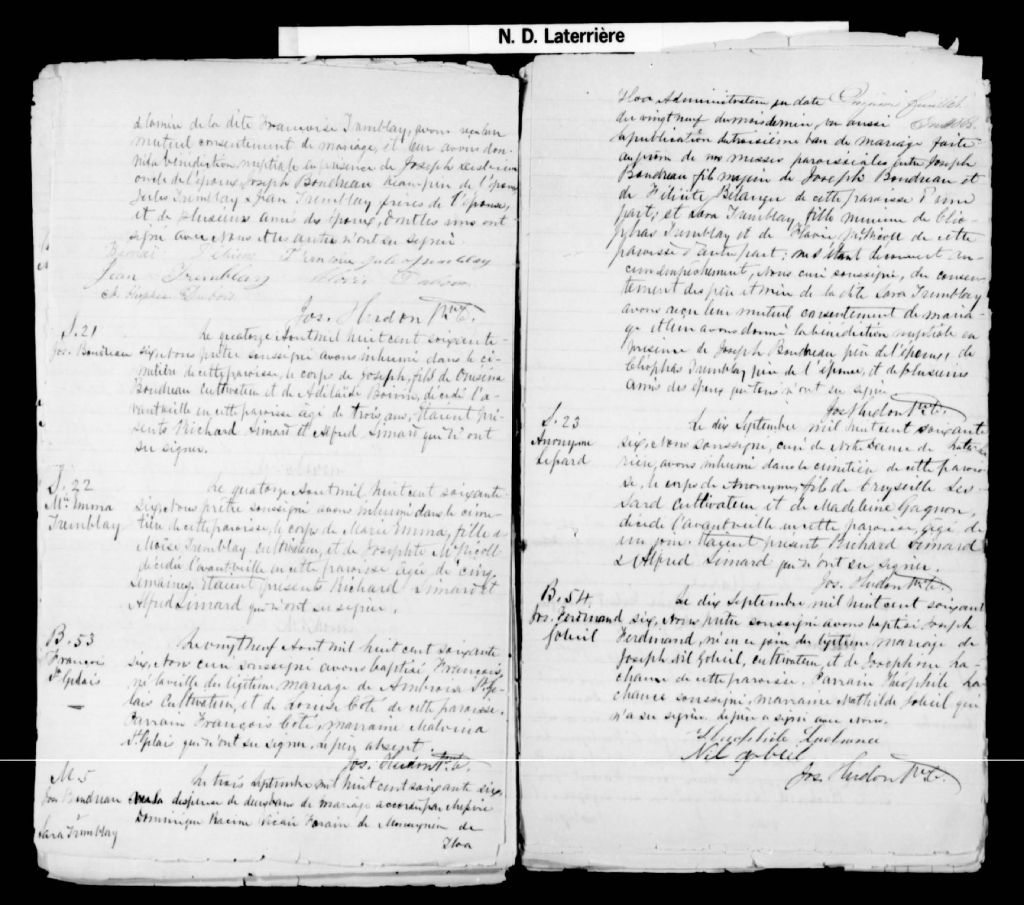 N. D. Laterrière
de la mère de la dite Françoise Tremblay, avons reçu leur
mutuel consentement de mariage, et leur avons don-
né la bénédiction nuptiale en présence de Joseph
oncle de l'époux, Joseph Boudreau beau père de l'époux
Jules Tremblay & Jean Tremblay frères de l'épouse,
et de plusieurs amis des époux, dont les uns ont
signé avec Nous et les autres n'ont su signer.
Jules Tremblay
Jean Tremblay
Jos. Hudon Ptre C.
S. 21
Jos. Boudreau
Le quatorze Août mil huit cent soixante-
six, nous prêtre soussigné avons inhumé dans le ci-
metière de cette paroisse, le corps de Joseph, fils de Onésime
Boudreau Cultivateur et de Adélaïde Boivin, décédé l'a-
vant veille en cette paroisse âgé de trois ans, Etaient pré-
sents Richard Simard et Alfred Simard qui n'ont
su signer.
S. 22
Mie Emma
Tremblay
Le quatorze Août mil huit cent soixante-
six, Nous prêtre soussigné avons inhumé dans le cime-
tière de cette paroisse, le corps de Marie Emma, fille de
Moïse Tremblay cultivateur, et de Josephte McNicoll
décédée l'avant veille en cette paroisse âgée de cinq
semaines. Etaient présents Richard Simard et
Alfred Simard qui n'ont su signer.
B. 53
François
St Gelais
Le vingt neuf Août mil huit cent soixante
six, Nous curé soussigné avons baptisé François,
né la veille du légitime mariage de Ambroise St Ge-
lais Cultivateur, et de Louise Coté de cette paroisse.
Parrain François Coté, marraine Malvina
St Gelais qui n'ont su signer, le père absent.
Jos. Hudon Ptre C.
M. 5
Jos. Boudreau
&
Sara Tremblay
Le trois Septembre mil huit cent soixante six,
Vu la dispense de deux bans de mariage accordée par Messire
Dominique Racine Vicaire Forain de Monseigneur de
Tloa
Tloa Administrateur en date
du vingt neuf du mois dernier, vu aussi
la publication du troisième ban de mariage faite
au prône de nos messes paroissiales entre Joseph
Boudreau fils majeur de Joseph Boudreau et
de Félicité Bélanger de cette paroisse d'une
part; et Sara Tremblay, fille mineure de Cléo-
phas Tremblay et de Flavie McNicoll de cette
paroisse d'autre part; ne s'étant découvert au-
cun empêchement, Nous curé soussigné, du consen-
tement des père et mère de la dite Sara Tremblay
avons reçu leur mutuel consentement de maria-
ge et leur avons donné la bénédiction nuptiale en
présence de Joseph Boudreau père de l'époux, de
Cléophas Tremblay père de l'épouse, et de plusieurs
amis des époux qui tous n'ont su signer.
Jos. Hudon Ptre C.
S. 23
Anonyme
Lessard
Le dix Septembre mil huit cent soixante
six, Nous soussigné, curé de Notre Dame de Later-
rière, avons inhumé dans le cimetière de cette parois-
se, le corps de Anonyme, fils de Les-
sard Cultivateur et de Madeleine Gagnon,
décédé l'avant veille en cette paroisse, âgé de
un jour. Etaient présents Richard Simard
& Alfred Simard qui n'ont su signer.
Jos. Hudon Ptre C.
B. 54
Jos. Ferdinand
Soleil
Le dix Septembre mil huit cent soixante
six, Nous prêtre soussigné avons baptisé Joseph
Ferdinand, né en ce jour du légitime mariage de
Joseph Nil Gobeil, cultivateur, et de Josephine La-
chance de cette paroisse. Parrain Théophile La-
chance soussigné, marraine Mathilde Gobeil qui
n'a su signer. Le père a signé avec Nous.
Théophile Lachance
Nil Gobeil
Jos. Hudon Ptre C.